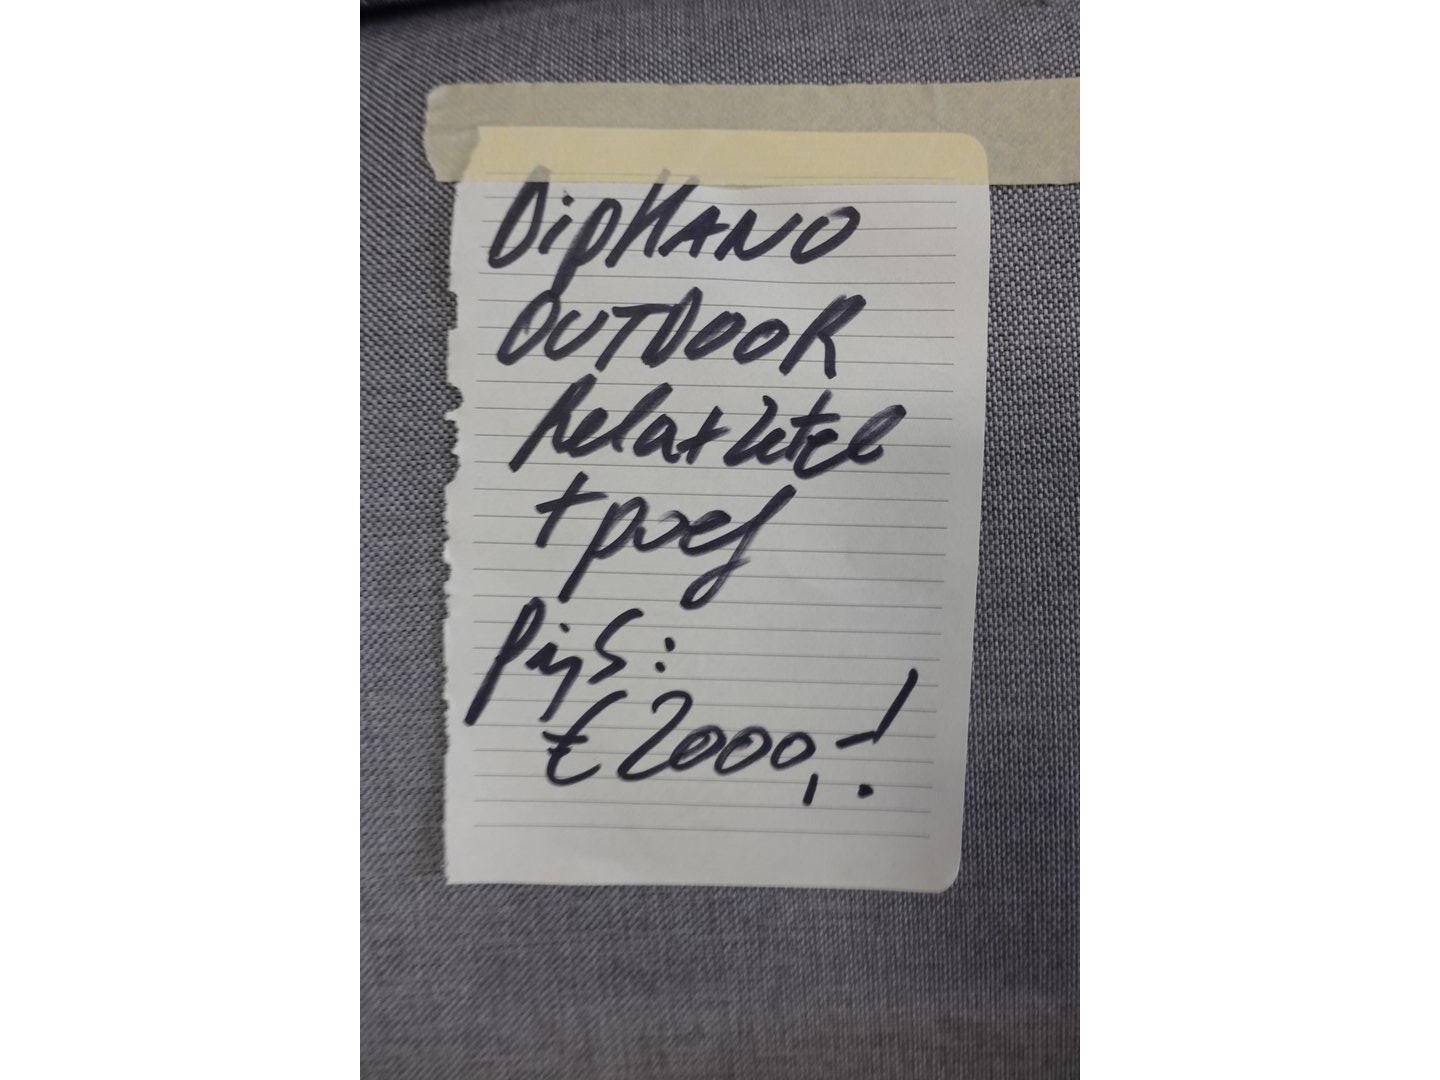 DipHANO
OUTDOOR
Relaxzetel
+ poef
prijs:
€ 2000,-!